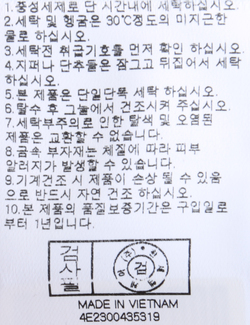 1.중성세제로 단 시간내에 세탁하십시오.
2.세탁 및 헹굼은 30°C정도의 미지근한
물로 하십시오.
3.세탁전 취급기호를 먼저 확인 하십시오.
4.지퍼나 단추들은 잠그고 뒤집어서 세탁
하십시오.
5.본 제품은 단일단독 세탁 하십시오.
6.탈수 후 그늘에서 건조시켜 주십시오.
7.세탁부주의로 인한 탈색 및 오염된
제품은 교환할 수 없습니다.
8.금속 부자재는 체질에 따라 피부
알러지가 발생할 수 있습니다.
9.기계건조 시 제품이 손상 될 수 있음
으로 반드시 자연 건조 하십시오.
10.본 제품의 품질보증기간은 구입일로
부터 1년입니다.
검사필
검
MADE IN VIETNAM
4E2300435319